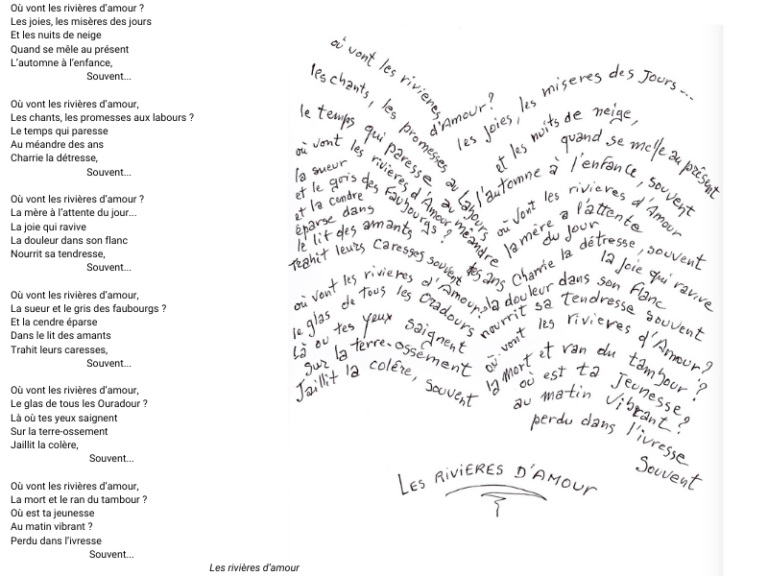 Où vont les rivières d'amour ?
Les joies, les misères des jours
Et les nuits de neige
Quand se mêle au présent
L'automne à l'enfance,
Souvent...
Où vont les rivières d'amour,
Les chants, les promesses aux labours ?
Le temps qui paresse
Au méandre des ans
Charrie la détresse,
Souvent...
Où vont les rivières d'amour ?
La mère à l'attente du jour...
La joie qui ravive
La douleur dans son flanc
Nourrit sa tendresse,
Souvent...
Où vont les rivières d'amour,
La sueur et le gris des faubourgs ?
Et la cendre éparse
Dans le lit des amants
Trahit leurs caresses,
Souvent...
Où vont les rivières d'amour,
Le glas de tous les Ouradour ?
Là où tes yeux saignent
Sur la terre-ossement
Jaillit la colère,
Souvent...
Où vont les rivières d'amour,
La mort et le ran du tambour ?
Où est ta jeunesse
Au matin vibrant ?
Perdu dans l'ivresse
Souvent...
Les rivières d'amour
où vont les rivieres d'Amour?
les joies, les miseres des Jours...
et les nuits de neige,
quand se melle au présent
l'automne à l'enfance, souvent
les chants, les promesses au labours
le temps qui paresse au méandre
des ans Charrie la détresse, souvent
où vont les rivieres d'Amour
la mère a l'attente du jour
la joie qui ravive
la douleur dans son flanc
nourrit sa tendresse souvent
où vont les rivieres d'Amour
la sueur
et le gris des Faubourgs ?
et la cendre
éparse dans
le lit des amants
trahit leurs caresses souvent
où vont les rivieres d'Amour,
le glas de tous les Oradours
Là ou tes yeux saignent
Sur la terre-ossement
Jaillit la colére, souvent
où vont les rivieres d'Amour?
la mort et ran du tambour ?
où est ta Jeunesse?
au matin vibrant ?
perdu dans l'ivresse
Souvent
LES RIVIERES D'AMOUR